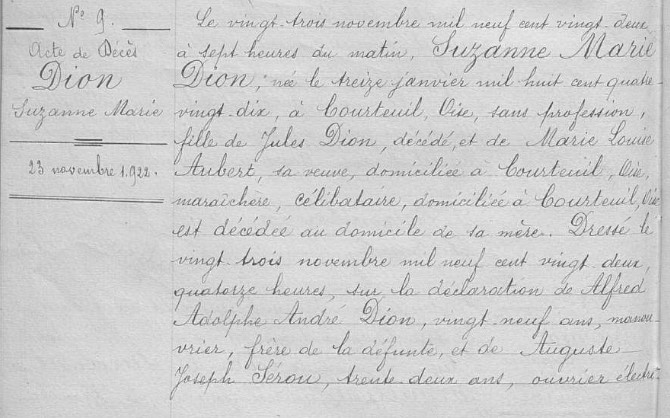 N° 9.
Acte de Décès
Dion
Suzanne Marie
23 novembre 1922.
Le vingt-trois novembre mil neuf cent vingt deux
à sept heures du matin, Suzanne Marie
Dion, née le treize janvier mil huit cent quatre-
vingt-dix, à Courteuil, Oise, sans profession,
fille de Jules Dion, décédé, et de Marie Louise
Aubert, sa veuve, domiciliée à Courteuil, Oise,
maraîchère, célibataire, domiciliée à Courteuil, Oise
est décédée au domicile de sa mère. Dressé le
vingt-trois novembre mil neuf cent vingt deux,
quatorze heures, sur la déclaration de Alfred
Adolphe André Dion, vingt neuf ans, manou-
vrier, frère de la défunte, et de Auguste
Joseph Sérou, trente deux ans, ouvrier électri-